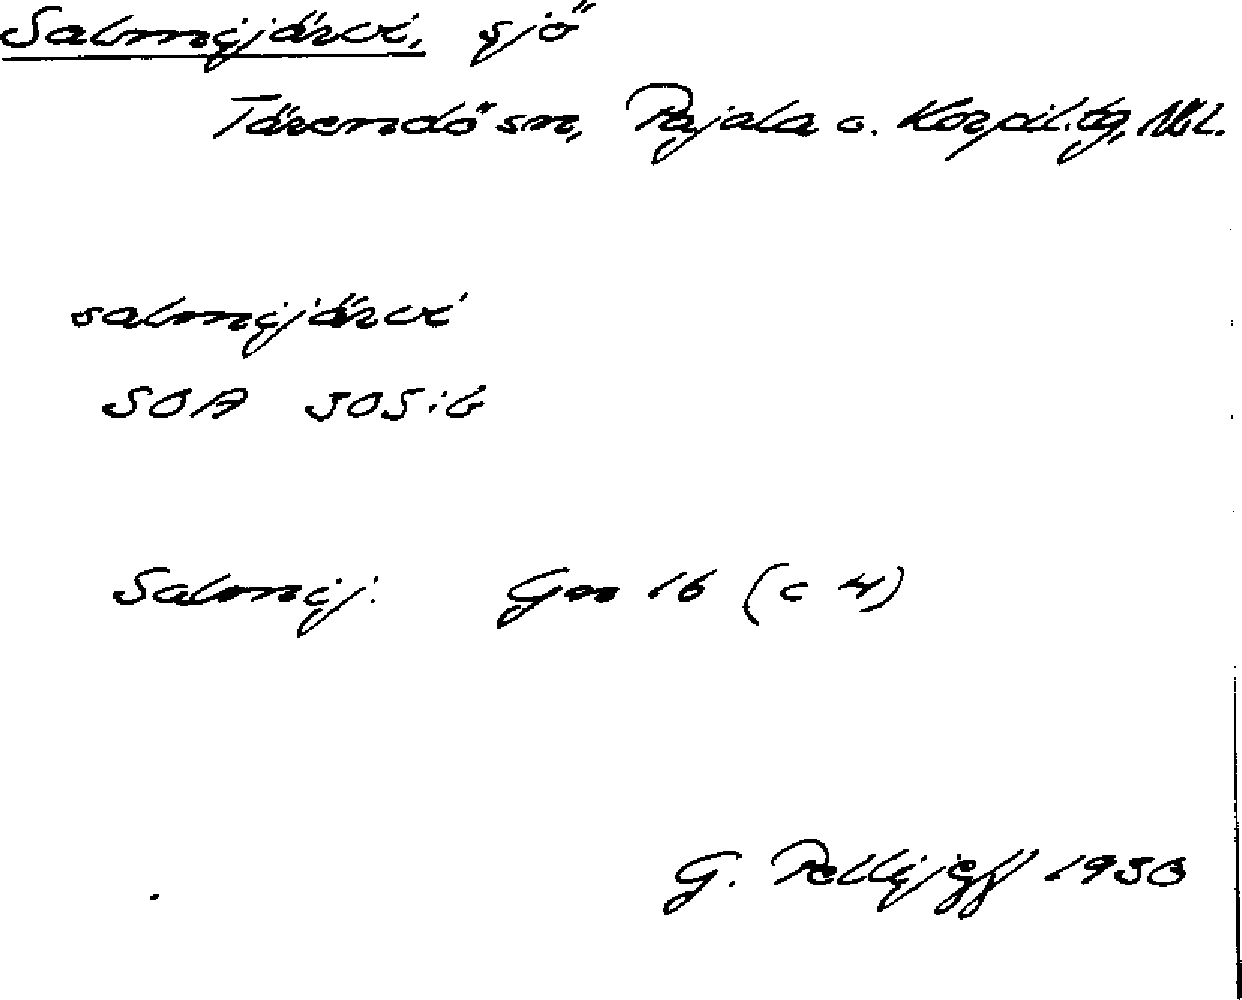 Salmijärvi, sjö
Tärendö sn, Pajala o. Korpil. tg, Nbl.
salmijärvi
SOA 305:6
Salmij: Gen 16 (c 4)
G. Pellijeff 1950